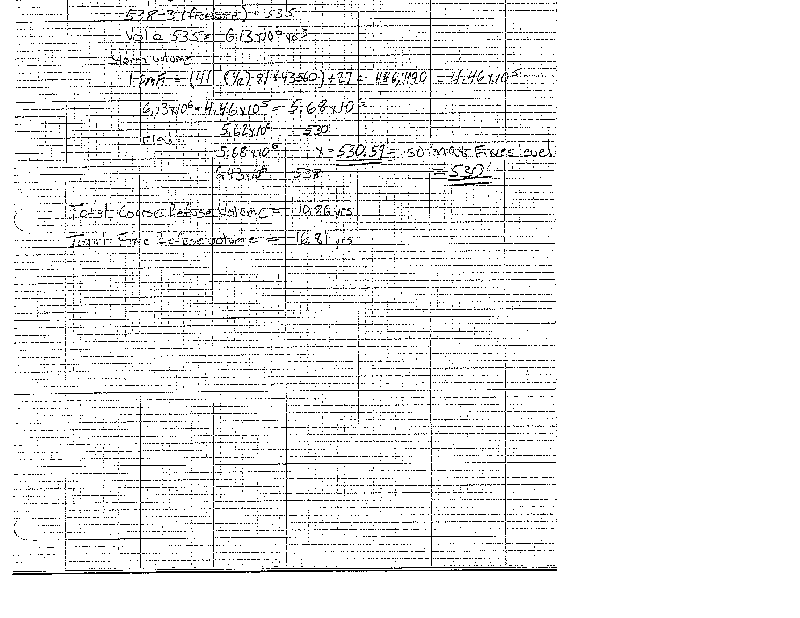 538-3 (freeboard) = 535
Vol @ 535 = 6.13x10⁶ yds³
Storm Volume
1 PMF = (41 (1/2) · 81 · 43560) ÷ 27 = 446,490 = 4.46x10⁵
6.13x10⁶ - 4.46x10⁵ = 5.68x10⁶
Elev. 5.62x10⁶ 530
5.68x10⁶ x = 530.59 so max Fines level
6.43x10⁶ 538 = 530'
Total Coarse Refuse Volume = 10.86 yrs
Total Fine Refuse Volume = 16.81 yrs